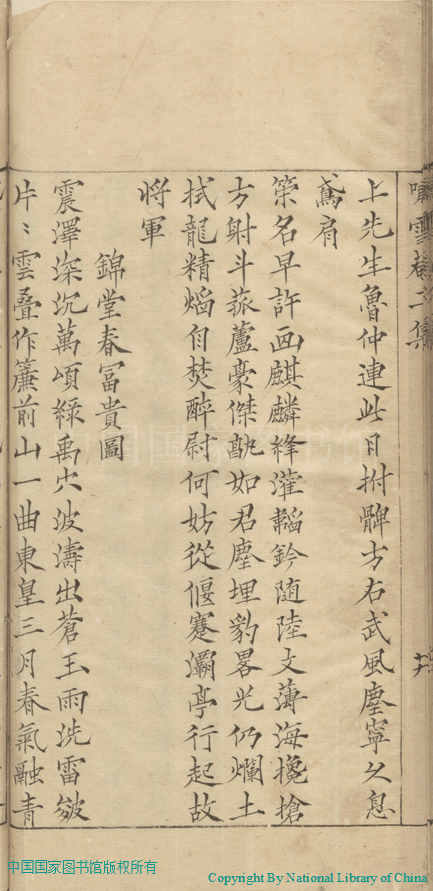 上先生魯仲連此日拊髀方右武風塵寧久息
鳶肩
策名早許画麒麟絳灌韜鈐随陸文薄海攙搶
方射斗菰蘆豪傑孰如君塵埋豹畧光仍爛土
拭龍精熖自焚醉尉何妨從偃蹇灞亭行起故
将軍
錦堂春冨貴圖
震澤深沉萬頃緑禹穴波濤出蒼玉雨洗雷皴
片〻雲叠作簾前山一曲東皇三月春氣融青
中国国家图书馆版权所有
Copyright By National Library of China